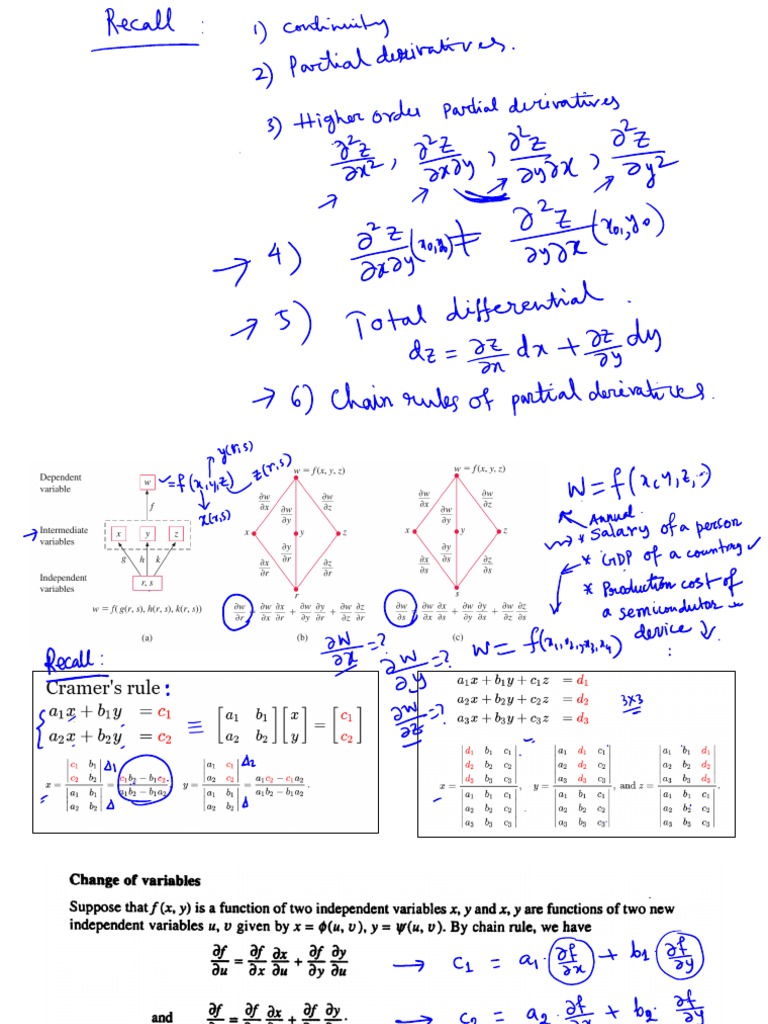 Recall :
1) Continuity
2) Partial derivatives.
3) Higher order partial derivatives
∂²z/∂x² , ∂²z/∂x∂y , ∂²z/∂y∂x , ∂²z/∂y²
→ 4) ∂²z/∂x∂y (x₀,y₀) ≠ ∂²z/∂y∂x (x₀,y₀)
→ 5) Total differential.
dz = ∂z/∂x dx + ∂z/∂y dy
→ 6) Chain rules of partial derivatives.
Dependent variable
w = f(x,y,z)
y(r,s)
z(r,s)
x(r,s)
f
→ Intermediate variables
x y z
g h k
Independent variables
r, s
w = f( g(r, s), h(r, s), k(r, s))
(a)
w = f(x, y, z)
∂w/∂x ∂w/∂y ∂w/∂z
x y z
∂x/∂r ∂y/∂r ∂z/∂r
r
∂w/∂r = ∂w/∂x ∂x/∂r + ∂w/∂y ∂y/∂r + ∂w/∂z ∂z/∂r
(b)
w = f(x, y, z)
∂w/∂x ∂w/∂y ∂w/∂z
x y z
∂x/∂s ∂y/∂s ∂z/∂s
s
∂w/∂s = ∂w/∂x ∂x/∂s + ∂w/∂y ∂y/∂s + ∂w/∂z ∂z/∂s
(c)
W = f(x,y,z,..)
Annual
* Salary of a person
* GDP of a country
* Production cost of
a semiconductor
device
W = f(x₁,x₂,x₃,x₄)
∂W/∂x = ?
∂W/∂y = ?
∂W/∂z = ?
Recall :
Cramer's rule :
a₁x + b₁y = c₁
a₂x + b₂y = c₂
≡ [a₁ b₁; a₂ b₂] [x; y] = [c₁; c₂]
x = |c₁ b₁; c₂ b₂| Δ1 / |a₁ b₁; a₂ b₂| Δ = (c₁b₂ − b₁c₂)/(a₁b₂ − b₁a₂). y = |a₁ c₁; a₂ c₂| Δ2 / |a₁ b₁; a₂ b₂| Δ = (a₁c₂ − c₁a₂)/(a₁b₂ − b₁a₂).
a₁x + b₁y + c₁z = d₁
a₂x + b₂y + c₂z = d₂
a₃x + b₃y + c₃z = d₃
3x3
x = |d₁ b₁ c₁; d₂ b₂ c₂; d₃ b₃ c₃| / |a₁ b₁ c₁; a₂ b₂ c₂; a₃ b₃ c₃|, y = |a₁ d₁ c₁; a₂ d₂ c₂; a₃ d₃ c₃| / |a₁ b₁ c₁; a₂ b₂ c₂; a₃ b₃ c₃|, and z = |a₁ b₁ d₁; a₂ b₂ d₂; a₃ b₃ d₃| / |a₁ b₁ c₁; a₂ b₂ c₂; a₃ b₃ c₃|.
Change of variables
Suppose that f (x, y) is a function of two independent variables x, y and x, y are functions of two new
independent variables u, v given by x = ϕ(u, v), y = ψ(u, v). By chain rule, we have
∂f/∂u = ∂f/∂x ∂x/∂u + ∂f/∂y ∂y/∂u → c₁ = a₁·∂f/∂x + b₁ ∂f/∂y
and ∂f/ = ∂f ∂x/ + ∂f ∂y/ . → c₂ = a₂·∂f/∂x + b₂·∂f/∂y